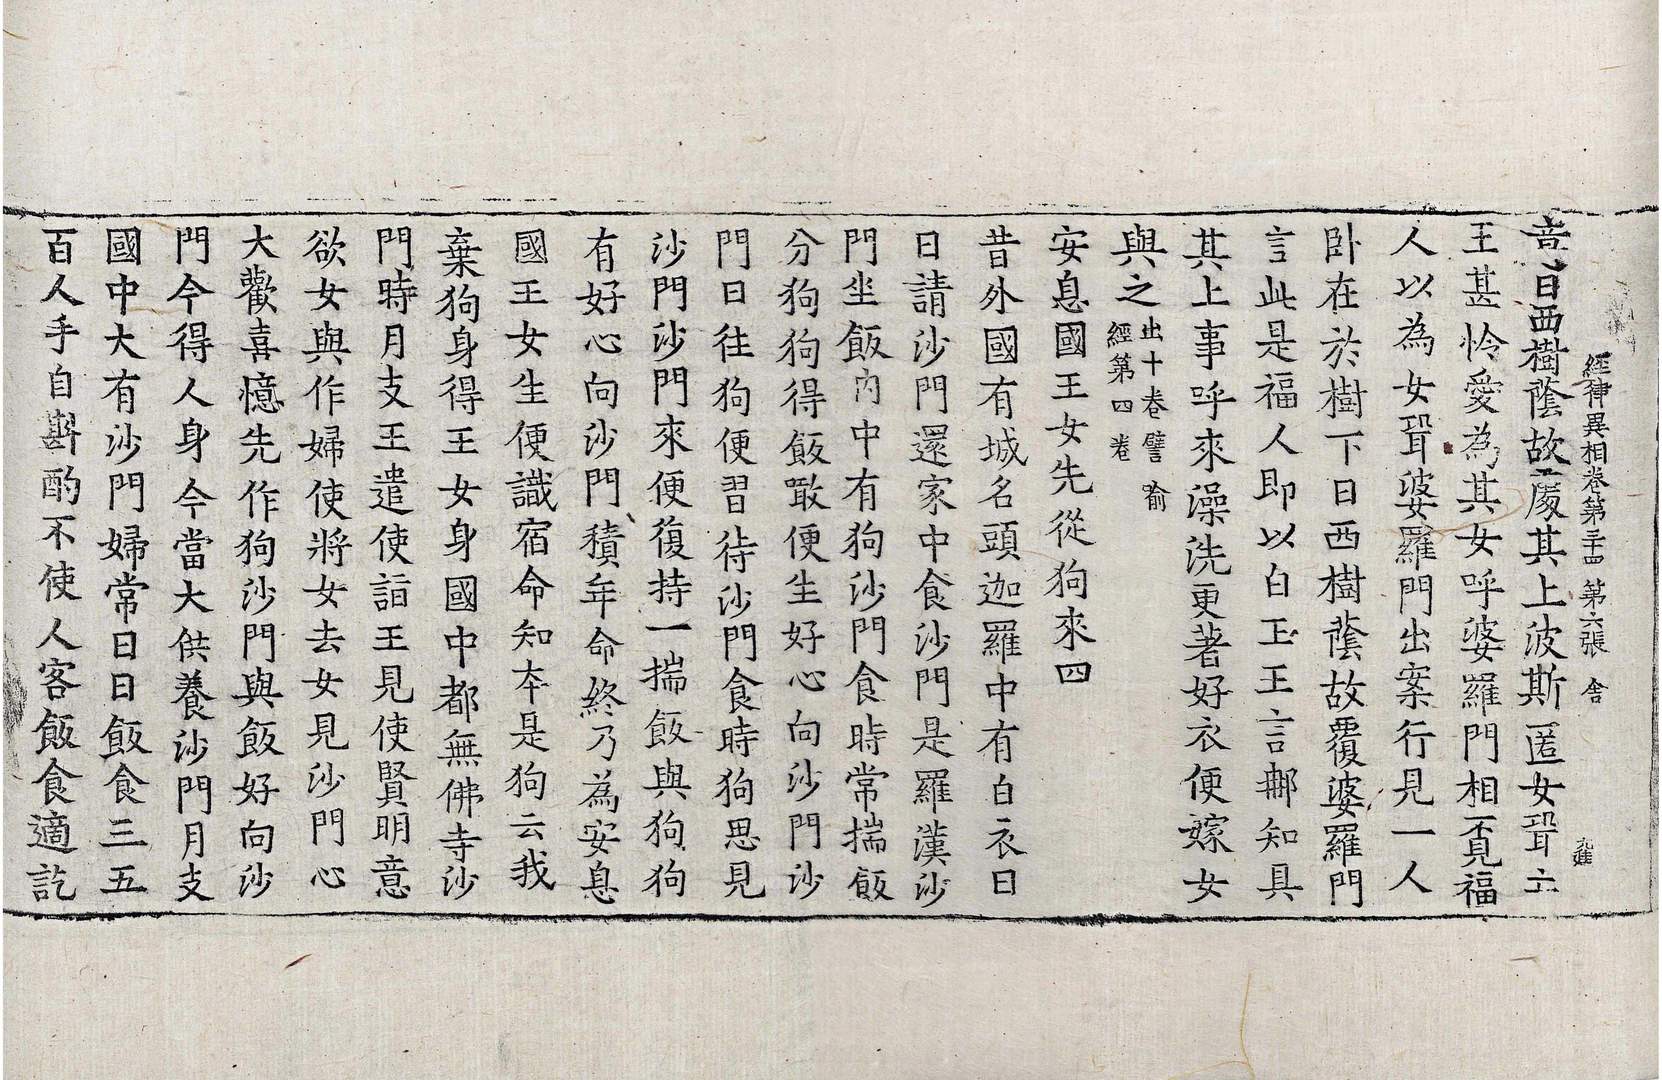 經律異相卷第三十四 第六張 舍
日西樹蔭故覆其上波斯匿女聟立
王甚怜愛為其女呼婆羅門相覓福
人以為女聟婆羅門出案行見一人
卧在於樹下日西樹蔭故覆婆羅門
言此是福人即以白王王言邮知具
其上事呼來澡洗更著好衣便嫁女
與之出十卷譬喻
經第四卷
安息國王女先從狗來四
昔外國有城名頭迦羅中有白衣日
日請沙門還家中食沙門是羅漢沙
門坐飯內中有狗沙門食時常揣飯
分狗狗得飯噉便生好心向沙門沙
門日往狗便習待沙門食時狗思見
沙門沙門來便復持一揣飯與狗狗
有好心向沙門積年命終乃為安息
國王女生便識宿命知本是狗云我
棄狗身得王女身國中都無佛寺沙
門時月支王遣使詣王見使賢明意
欲女與作婦使將女去女見沙門心
大歡喜憶先作狗沙門與飯好向沙
門今得人身今當大供養沙門月支
國中大有沙門婦常日日飯食三五
百人手自斟酌不使人客飯食適訖